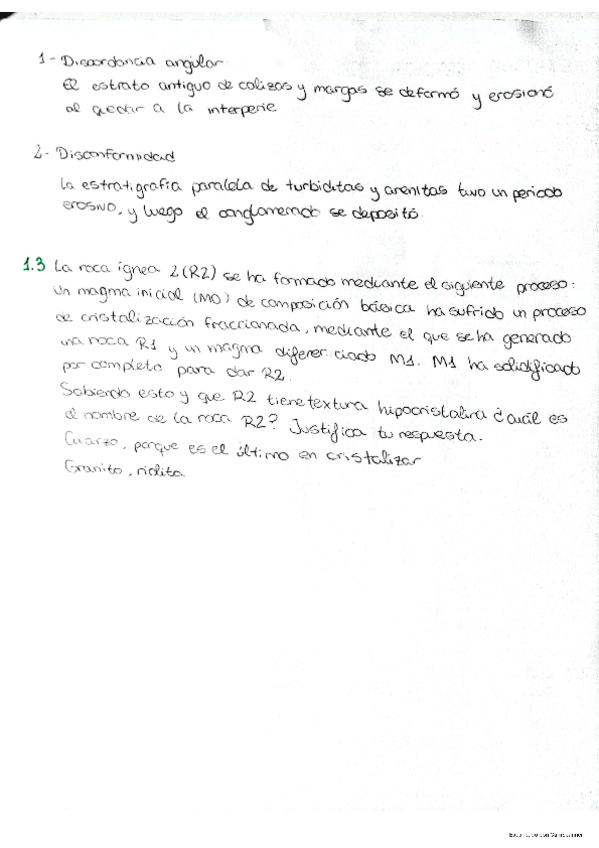 1- Discordancia angular
El estrato antiguo de calizas y margas se deformó y erosionó
al quedar a la interperie
2- Disconformidad
La estratigrafía paralela de turbiditas y arenitas tuvo un periodo
erosivo, y luego el conglomerado se depositó.
1.3 La roca ígnea 2 (R2) se ha formado mediante el siguiente proceso:
Un magma inicial (M0) de composición básica ha sufrido un proceso
de cristalización fraccionada, mediante el que se ha generado
una roca R1 y un magma diferenciado M1. M1 ha solidificado
por completo para dar R2.
Sabiendo esto y que R2 tiene textura hipocristalina ¿cuál es
el nombre de la roca R2? Justifica tu respuesta.
Cuarzo, porque es el último en cristalizar
Granito, riolita.